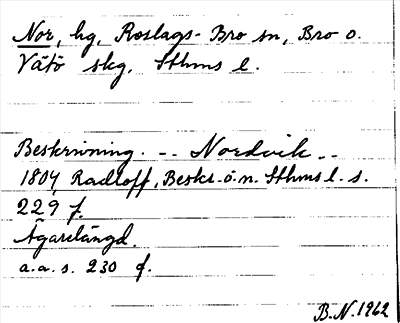 Nor, hg, Roslags-Bro sn, Bro o.
Vätö skg, Sthms l.
Beskrivning. -- Nordvik --
1804 Radloff, Beskr. ö. n. Sthms l. s.
229 f.
Ägarelängd.
a.a.s. 230 f.
B.N. 1962